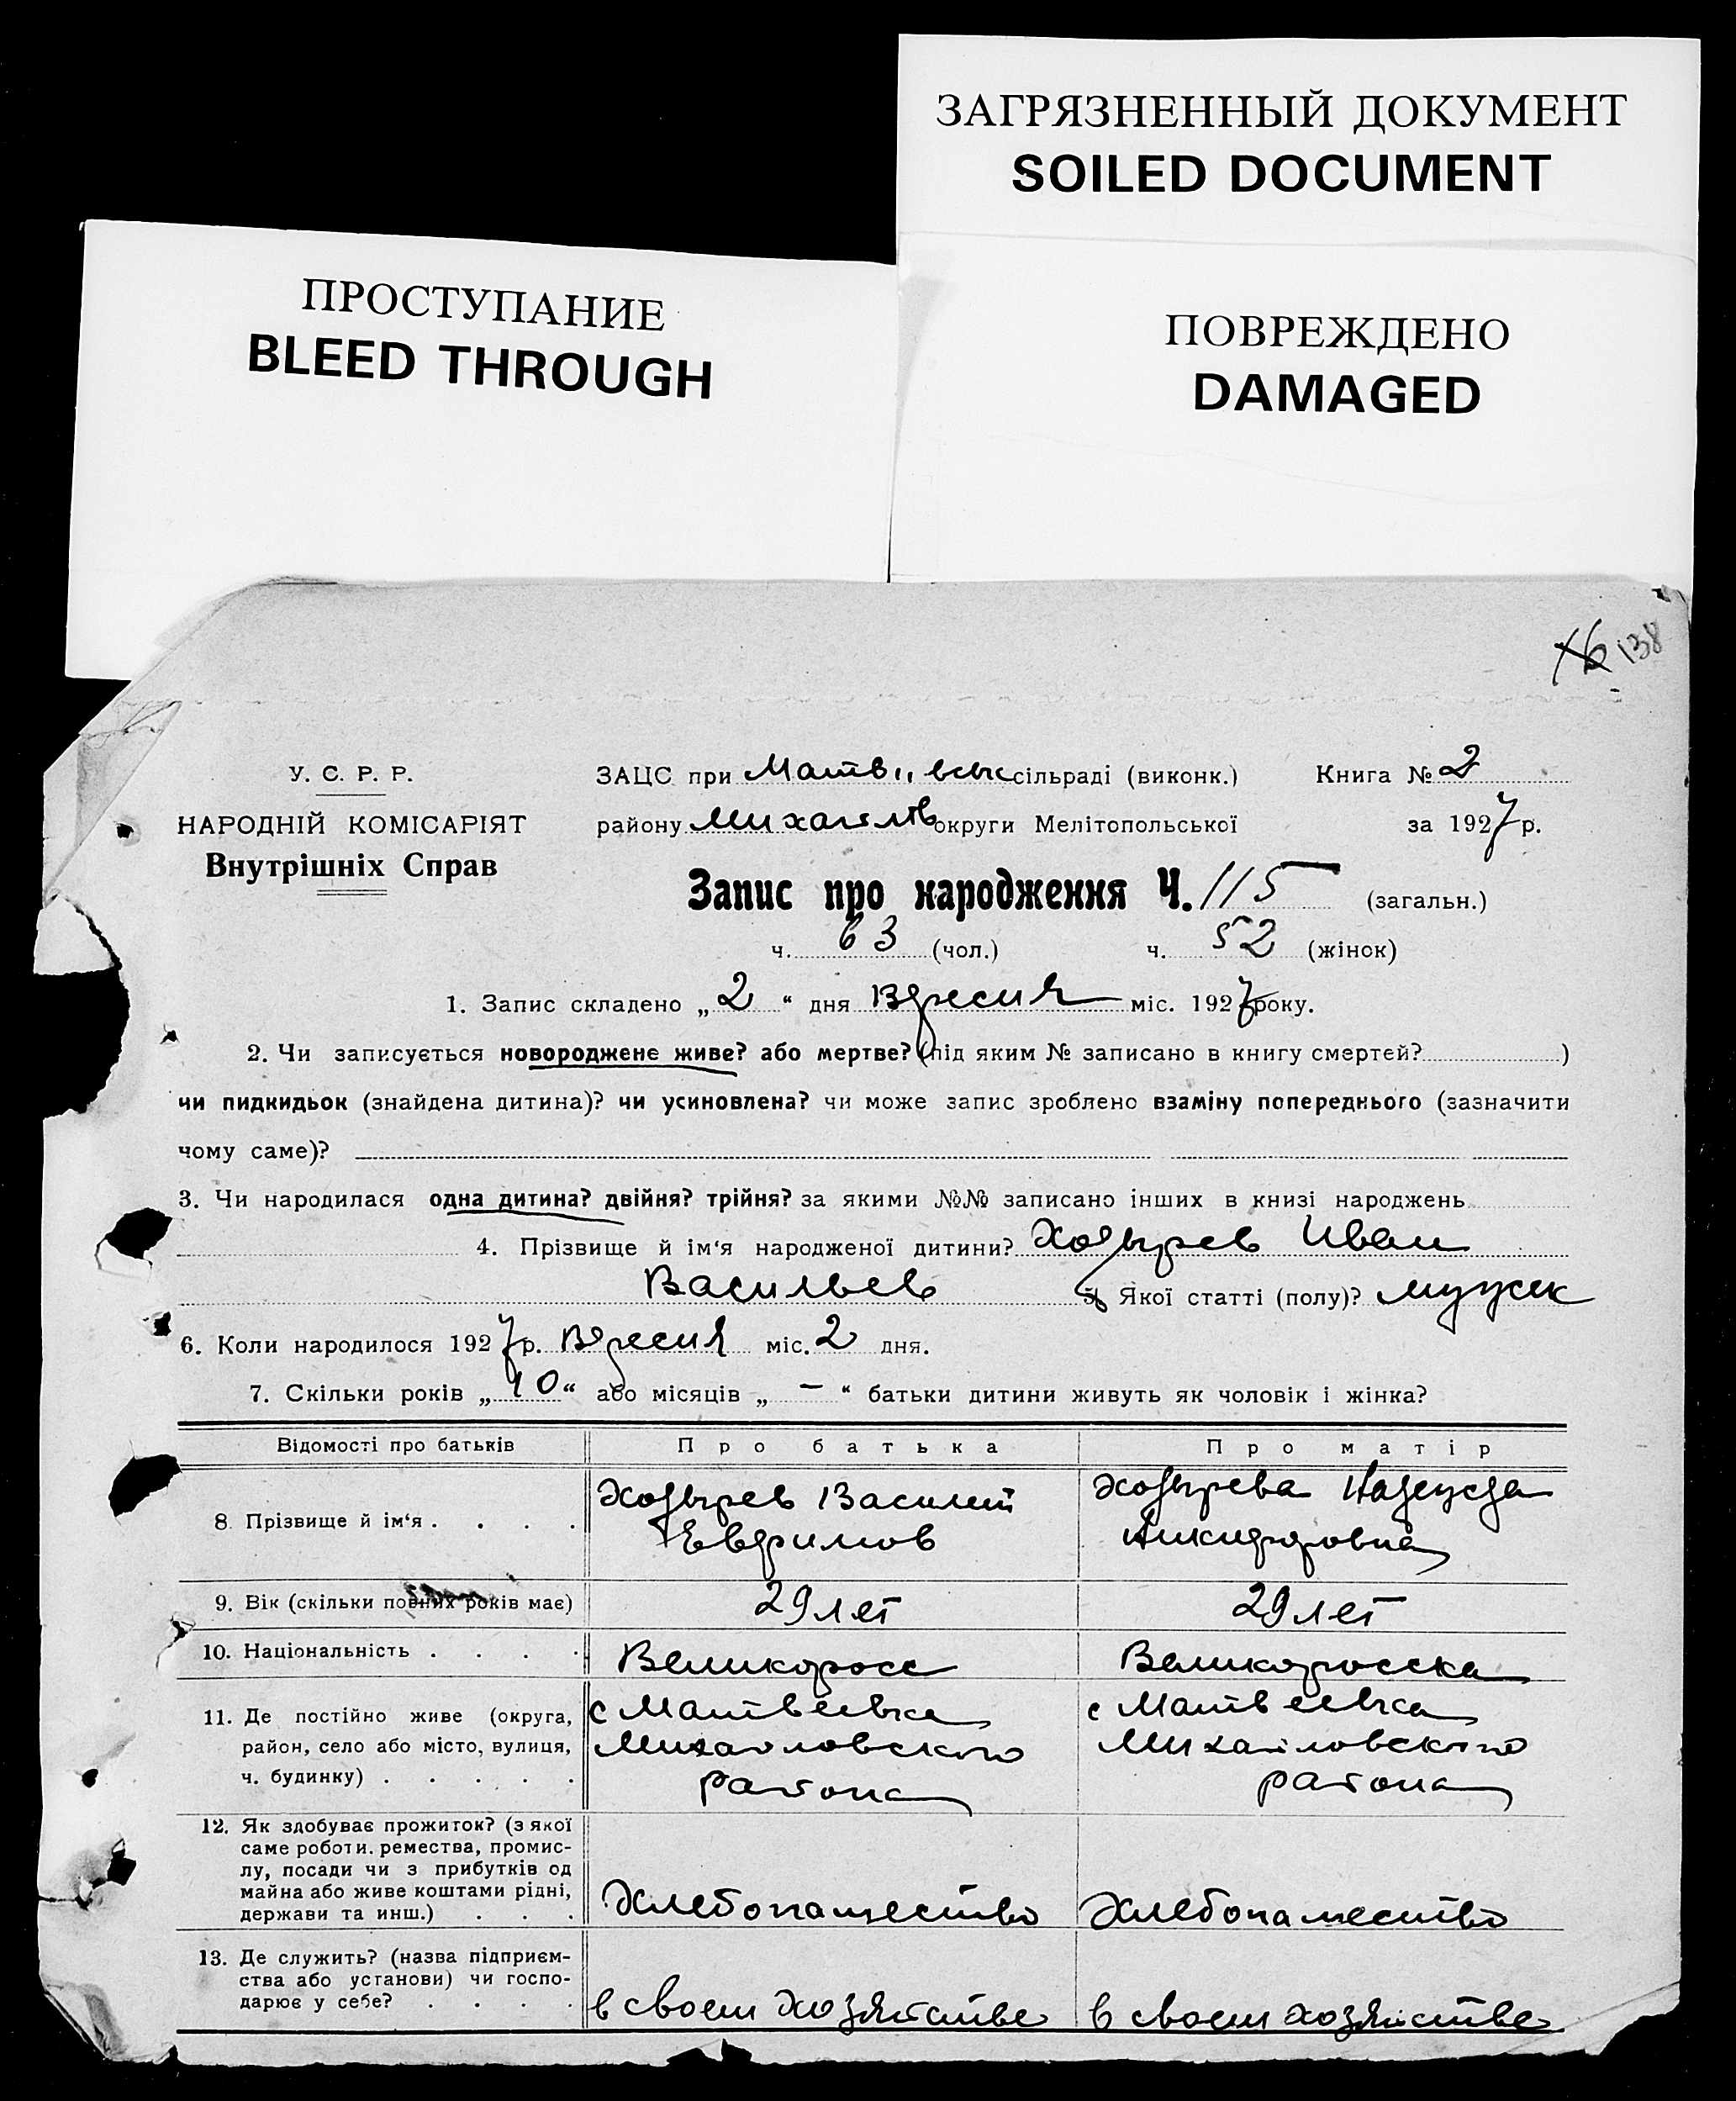 ЗАГРЯЗНЕННЫЙ ДОКУМЕНТ
SOILED DOCUMENT
ПРОСТУПАНИЕ
BLEED THROUGH
ПОВРЕЖДЕНО
DAMAGED
138
У. С. Р. Р.
НАРОДНІЙ КОМІСАРІЯТ
Внутрішніх Справ
ЗАЦС при сільраді (виконк.) Книга № 2
району округи Мелітопольської за 1927 р.
Запис про народження Ч. 115 (загальн.)
ч. 63 (чол.) ч. 52 (жінок)
1. Запис складено „ 2 “ дня Вересня міс. 1927 року.
2. Чи записується новороджене живе? або мертве? (під яким № записано в книгу смертей? )
чи пидкидьок (знайдена дитина)? чи усиновлена? чи може запис зроблено взаміну попереднього (зазначити
чому саме)?
3. Чи народилася одна дитина? двійня? трійня? за якими №№ записано інших в книзі народжень
4. Прізвище й ім‘я народженої дитини? Ходырев Иван
Васильев 5. Якої статті (полу)? мужск
6. Коли народилося 1927 р. Вересня міс. 2 дня.
7. Скільки років „ 10 “ або місяців „ — “ батьки дитини живуть як чоловік і жінка?
Відомості про батьків Про батька Про матір
8. Прізвище й ім‘я . . . . Ходырев Василий Ходырева Надежда
Евфимов Никифоровна
9. Вік (скільки повних років має) 29 лет 29 лет
10. Національність . . . . Великоросс Великоросска
11. Де постійно живе (округа, с Матвеевка с Матвеевка
район, село або місто, вулиця, Михайловского Михайловского
ч. будинку) . . . . . района района
12. Як здобуває прожиток? (з якої
саме роботи. ремества, промис-
лу, посади чи з прибутків од
майна або живе коштами рідні, Хлебопашество Хлебопашество
держави та инш.) . . .
13. Де служить? (назва підприєм-
ства або установи) чи госпо-
дарює у себе? . . . . в своем хозяйстве в своем хозяйстве